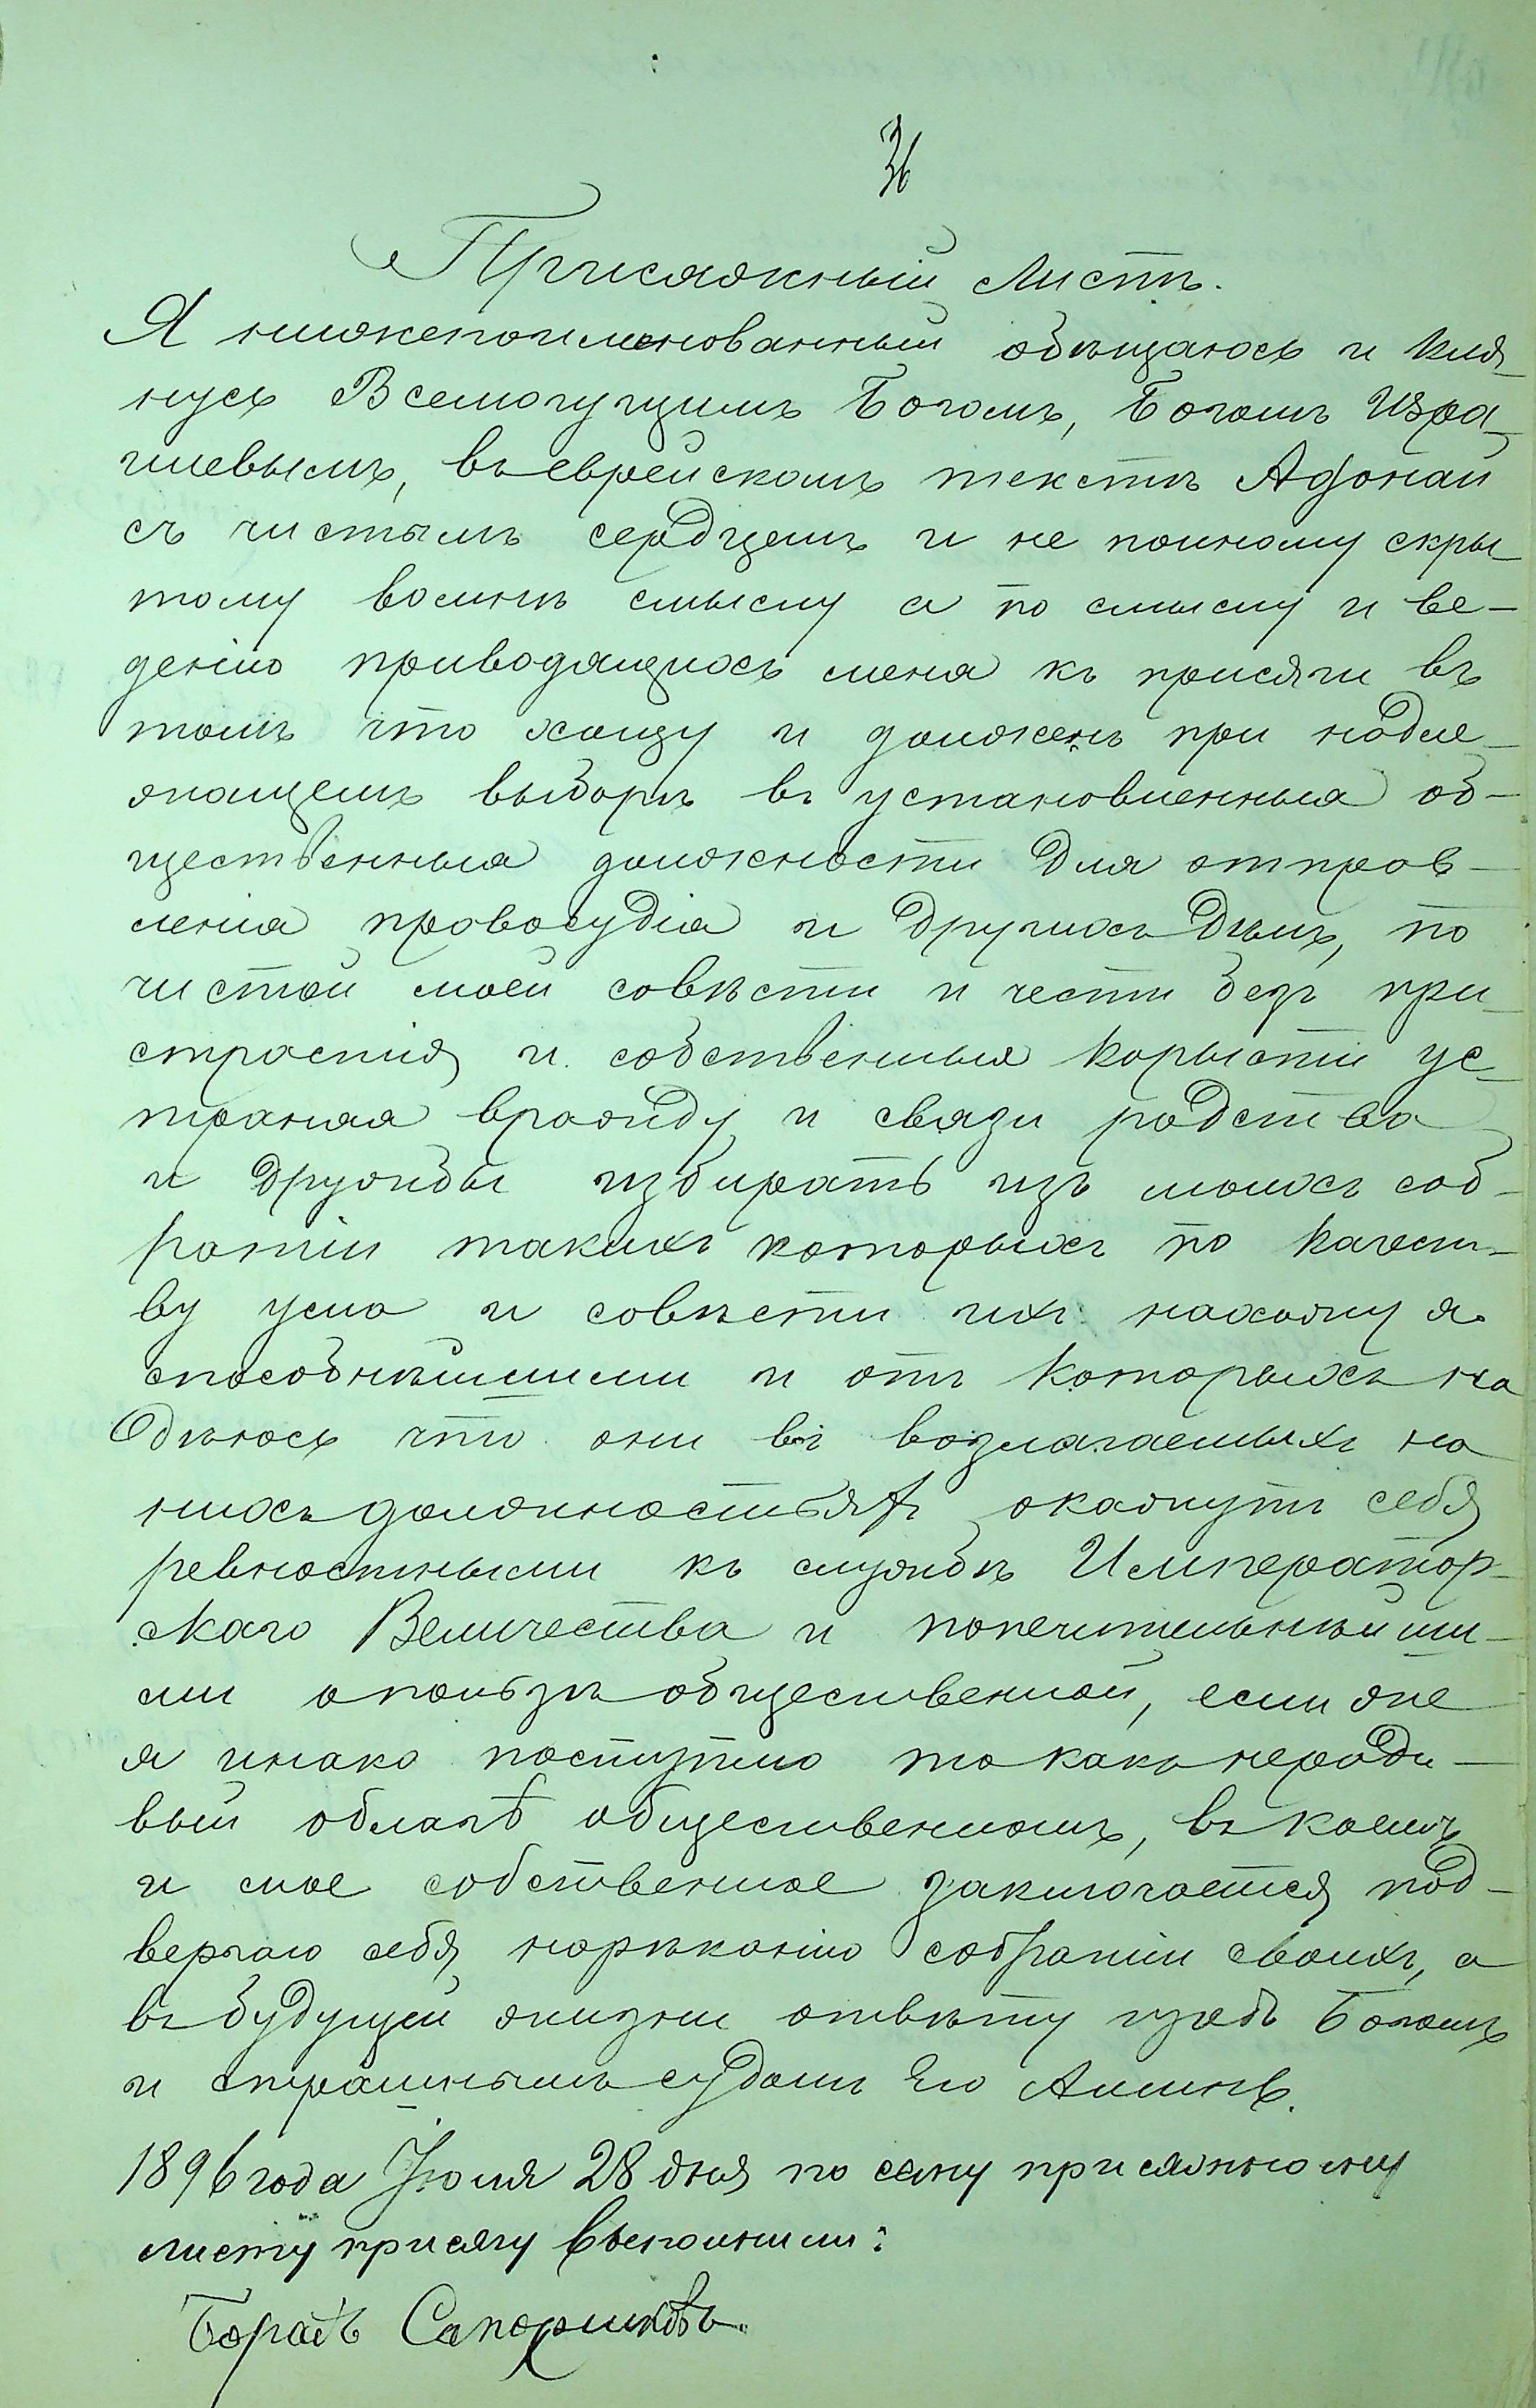 36
Присяжный листъ.
Я нижепоименованный обѣщаюсь и кля-
нусь Всемогущимъ Богомъ, Богомъ Изра-
илевымъ, въ еврейскомъ текстѣ Адонаи
съ чистымъ сердцемъ и не поиному скры-
тому вомнѣ смыслу а по смыслу и ве-
денію приводящихъ меня къ присяги въ
томъ что хощу и долженъ при надле-
жащемъ выборѣ въ установленныя об-
щественныя должности для отправ-
ленія правосудія и другихъ дѣлъ, по
чистой моей совѣсти и чести безъ при-
страстія и собственныя корысти ус-
траняя вражду и связи родства
и дружбы избирать изъ моихъ соб-
ратіи такихъ которыхъ по качест-
ву ума и совѣсти ихъ нахожу я
способнѣйшими и отъ которыхъ на
дѣюсь что они въ возлагаемыхъ на
нихъ должностьяхъ окажутъ себя
ревностными къ службѣ Император-
скаго Величества и попечительнѣйши-
ми о пользѣ общественной, если же
я инако поступлю то какъ неради-
вый облагѣ общественномъ, въ коемъ
и мое собственное заключается под-
вергаю себя нарѣканію собратіи своихъ, а
въ будущей жизни отвѣту предъ Богомъ
и страшнымъ судомъ Его Аминь.
1896 года Іюля 28 дня по сему присяжному
листу присягу выполнили: